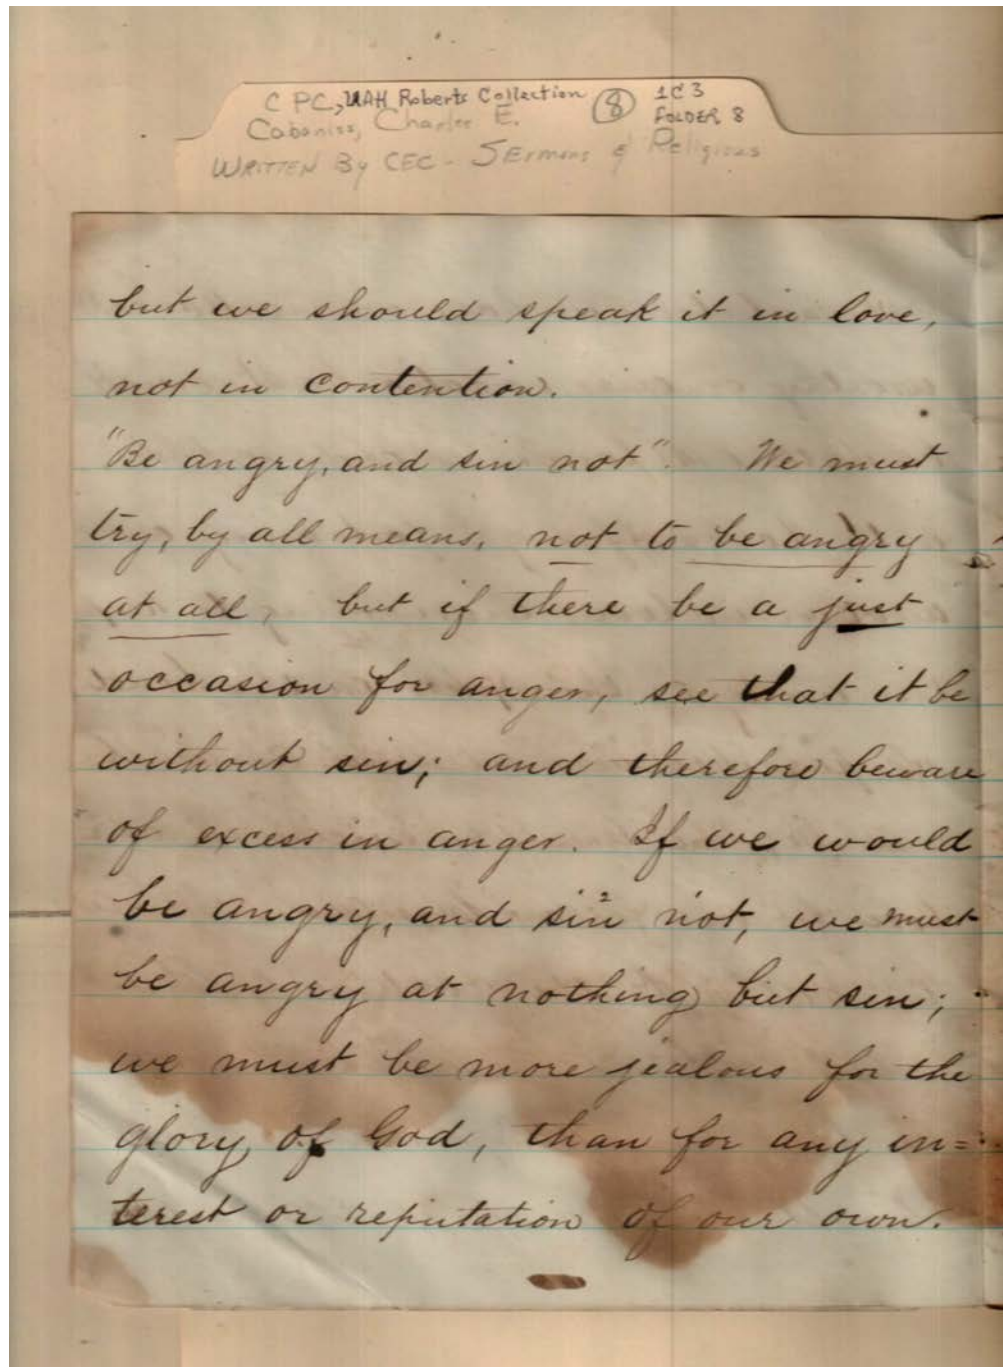 C PC, UAH Roberts Collection (8) 1C3
Cabaniss, Charles E. FOLDER 8
WRITTEN By CEC - SErmons & Religious
but we should speak it in love,
not in contention.
"Be angry, and sin not". We must
try, by all means, not to be angry
at all, but if there be a just
occasion for anger, see that it be
without sin; and therefore beware
of excess in anger. If we would
be angry, and sin not, we must
be angry at nothing but sin;
we must be more jealous for the
glory of God, than for any in=
terest or reputation of our own.